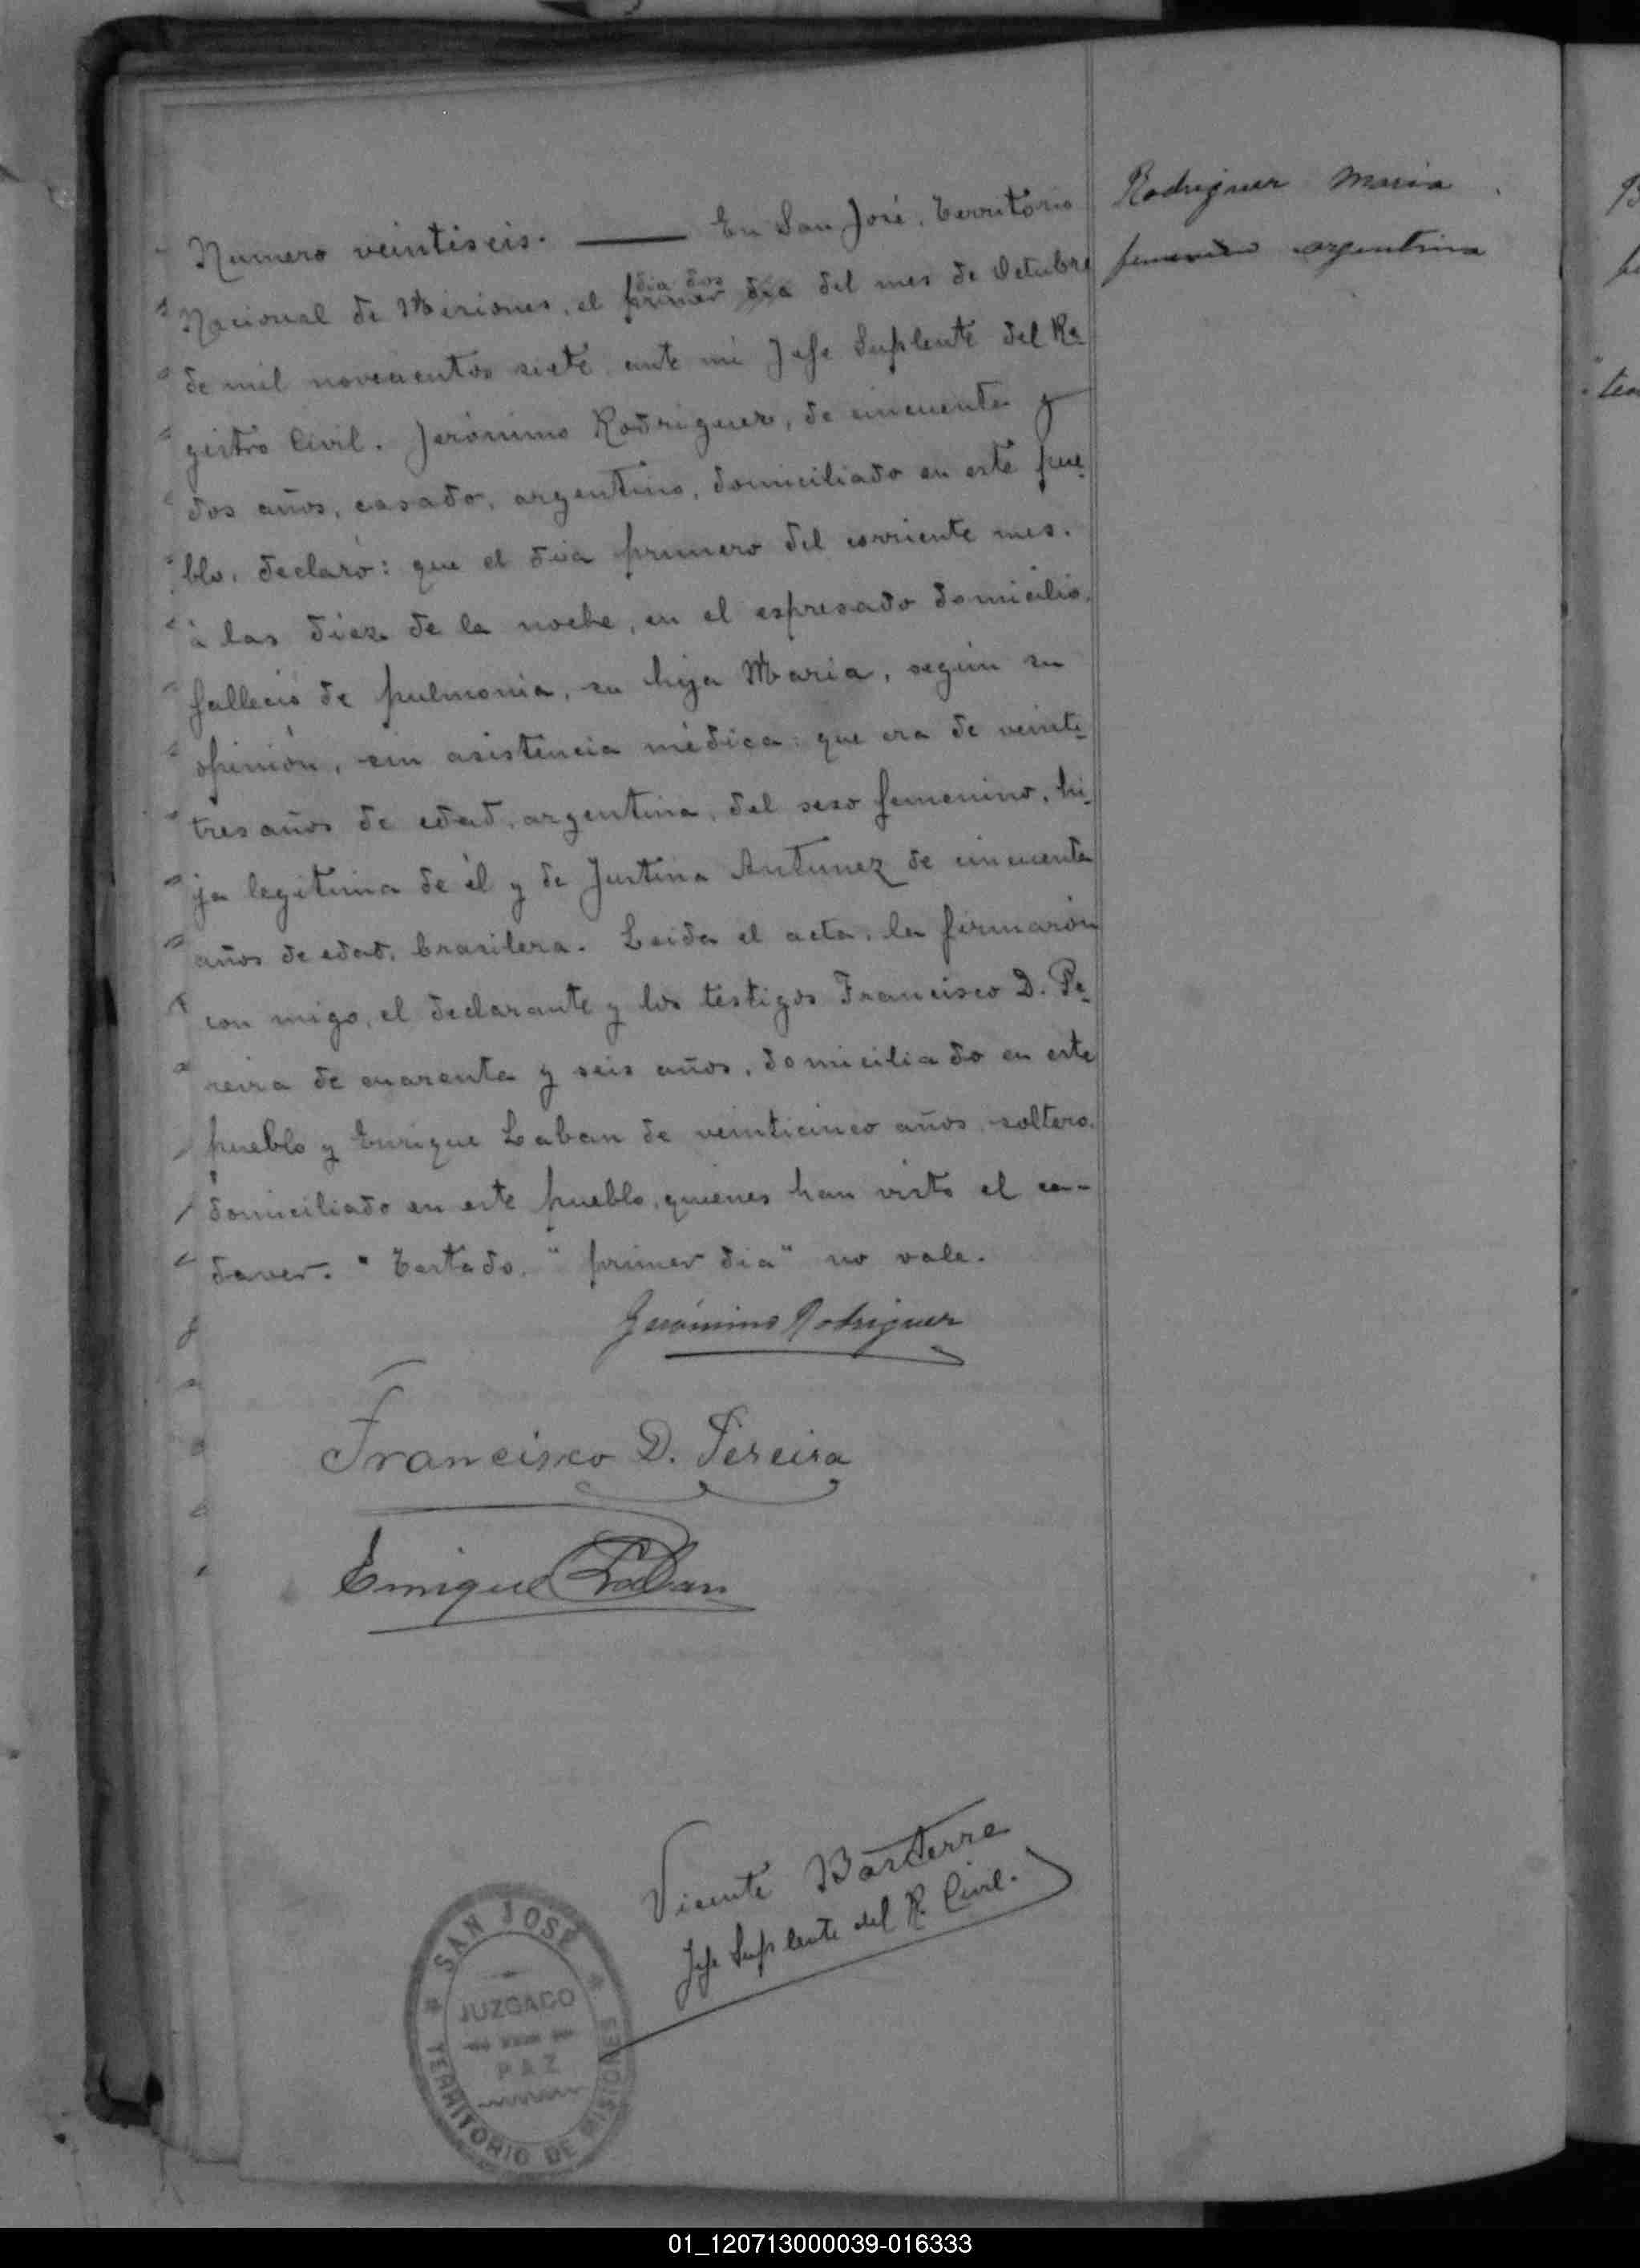 Rodriguez Maria
femenino argentina
Numero veintiseis. —— En San José, Territorio
Nacional de Misiones, el primer dia dia dos del mes de Octubre
de mil novecientos siete, ante mi Jefe Suplente del Re
gistro Civil. Jerónimo Rodriguez, de cincuenta y
dos años, casado, argentino, domiciliado en este pue
blo, declaró: que el dia primero del corriente mes.
á las diez de la noche, en el espresado domicilio,
falleció de pulmonia, su hija Maria, según su
opinión, sin asistencia médica: que era de veinti
tres años de edad, argentina, del sexo femenino, hi
ja legitima de él y de Justina Antunez de cincuenta
años de edad, brasilera. Leida el acta, la firmarón
con migo, el declarante y los testigos Francisco D. Pe
reira de cuarenta y seis años, domiciliado en este
pueblo y Enrique Laban de veinticinco años, soltero,
domiciliado en este pueblo, quienes han visto el ca-
daver. " Testado, " primer dia" no vale.
Gerónimo Rodriguez
Francisco D. Pereira
Enrique Laban
Vicente Basterre
Jefe Suplente del R. Civil.
SAN JOSÉ
JUZGADO
PAZ
TERRITORIO DE MISIONES
01_120713000039-016333